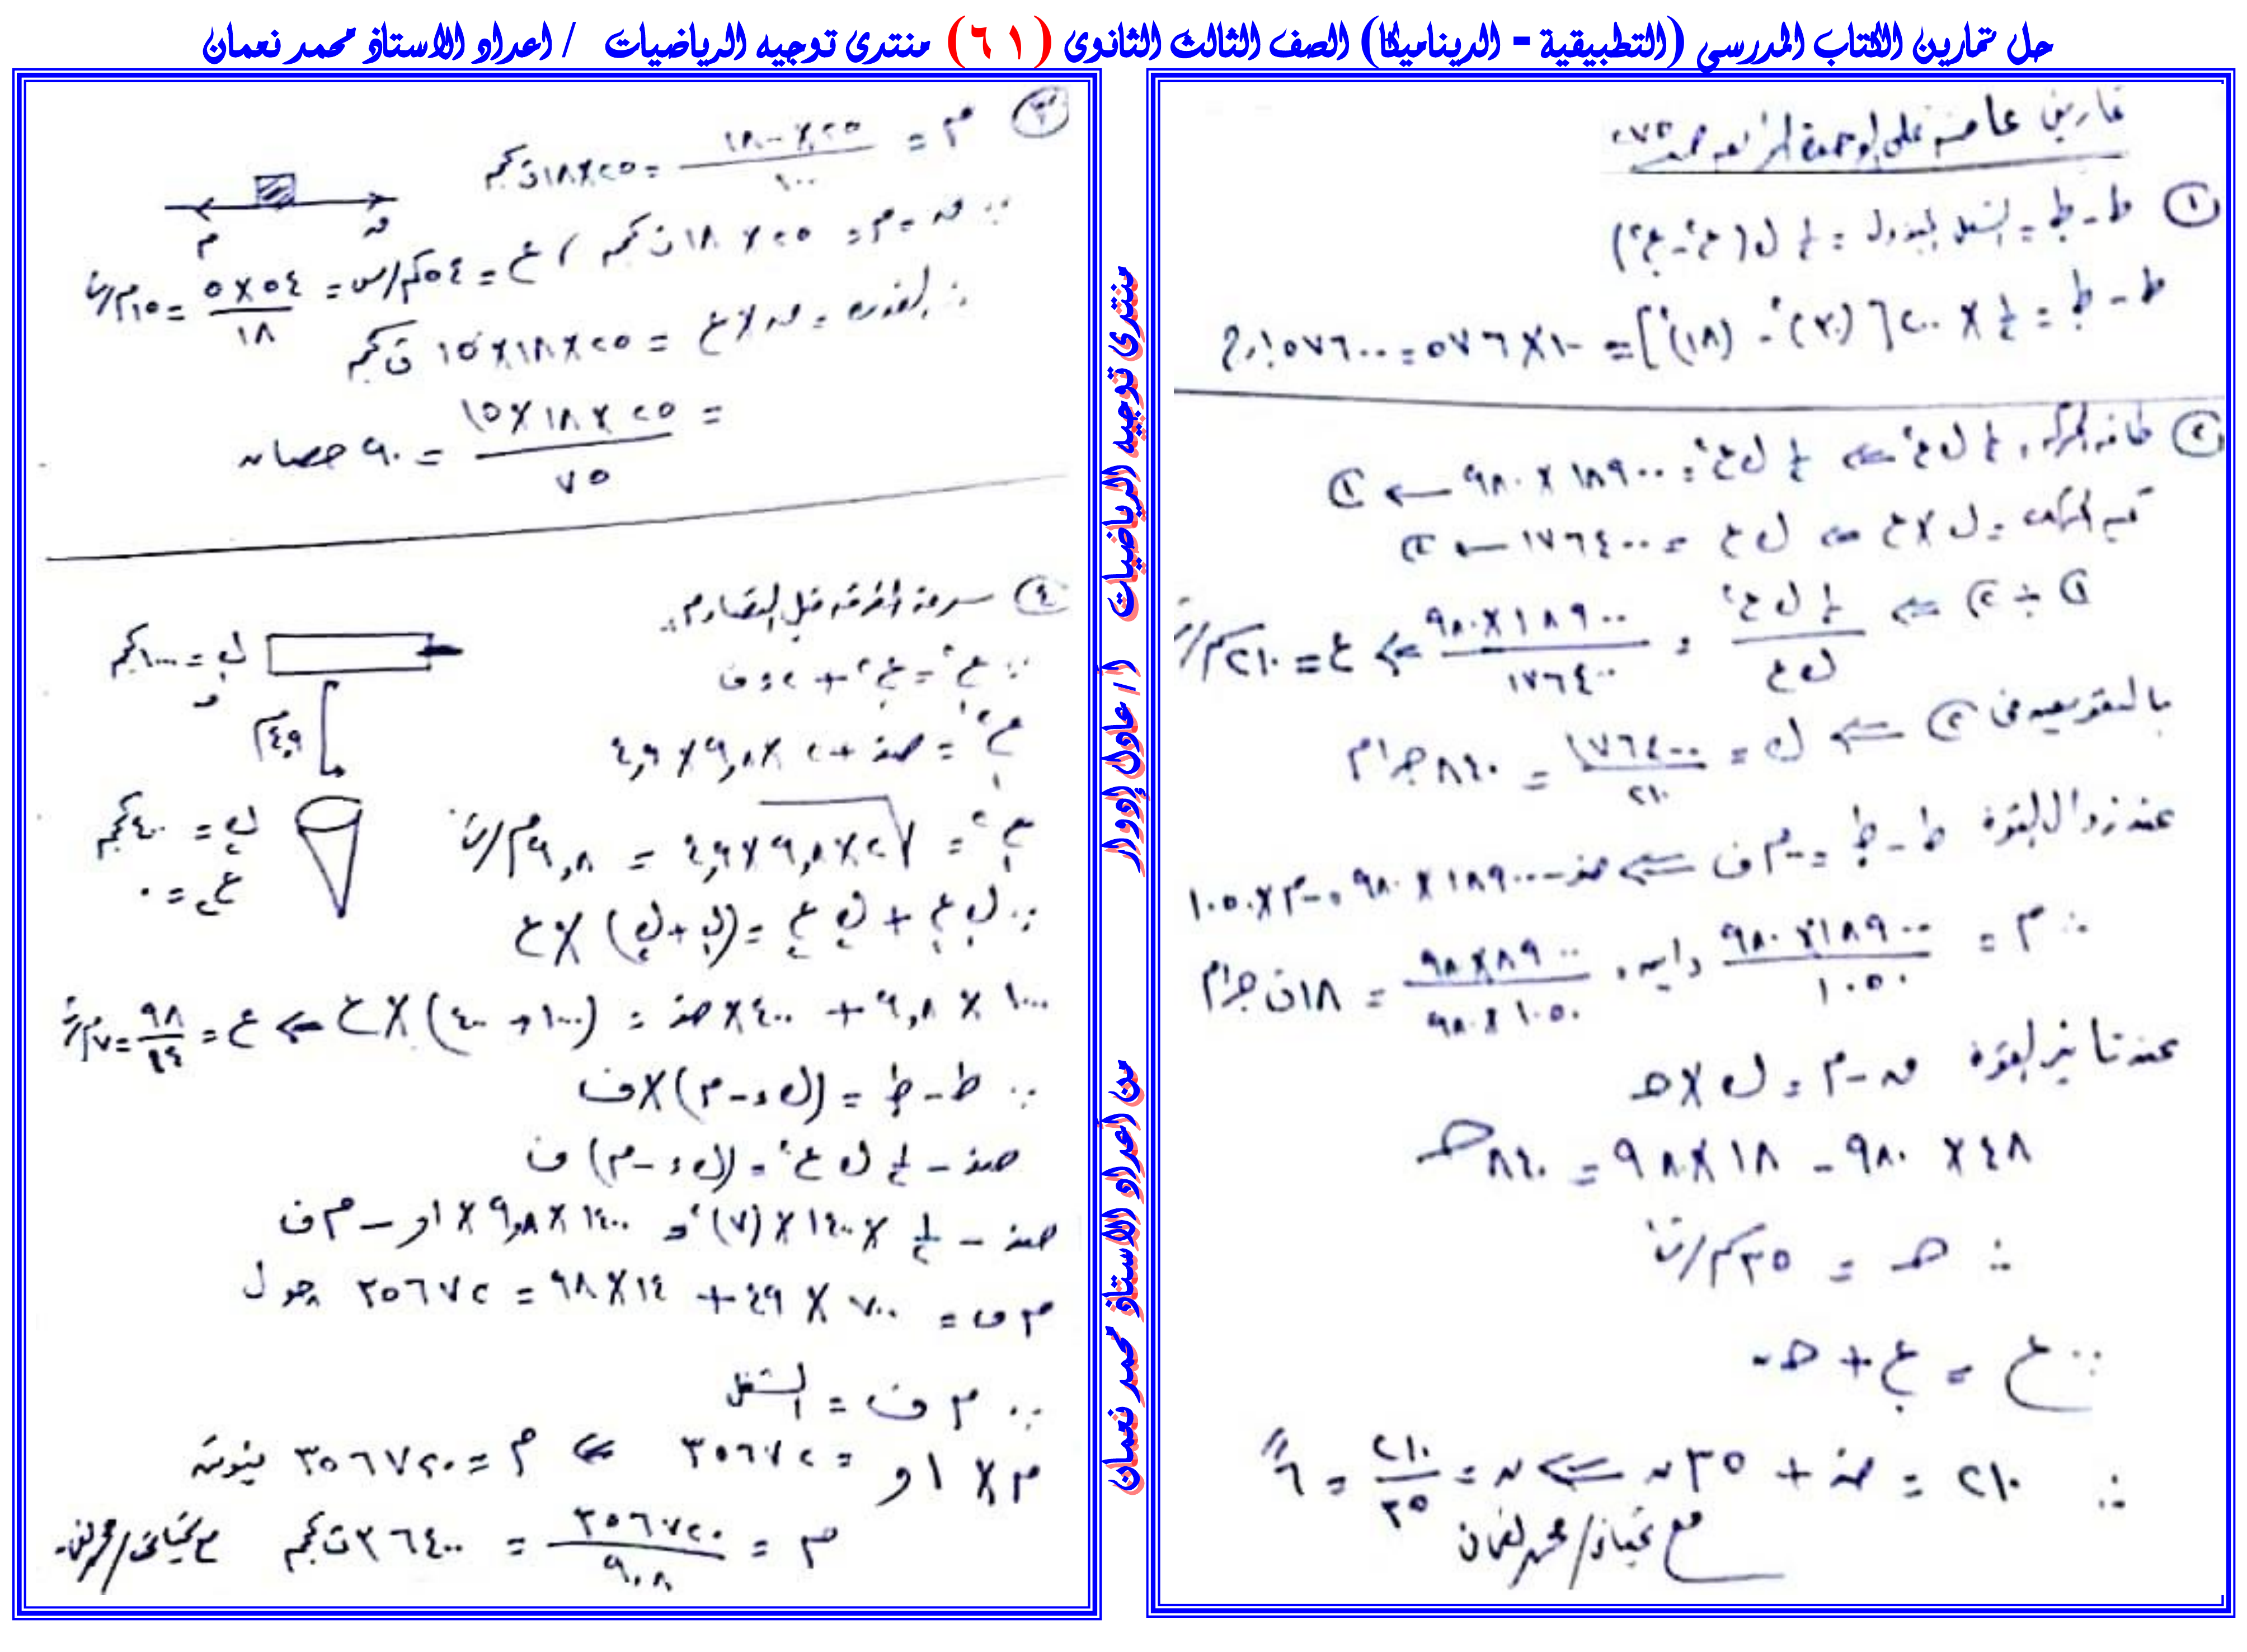 حل تمارين الكتاب المدرسي (التطبيقية - الديناميكا) الصف الثالث الثانوى (٦١) منتدى توجيه الرياضيات / اعداد الاستاذ محمد نعمان
تمارين عامة على الوحدة الرابعة صـ ٢٧٥
① ط - ط٠ = الشغل المبذول = ١/٢ ل (ع٢ - ع٠٢)
ط - ط٠ = ١/٢ × ٢٠٠ [(٣٠)٢ - (١٨)٢] = ١٠٠ × ٥٧٦ = ٥٧٦٠٠ جول
② طاقة الحركة = ١/٢ ل ع٢ ⇐ ١/٢ ل ع٢ = ١٨٩٠٠ × ٩٨٠ ← ①
كمية الحركة = ل × ع ⇐ ل ع = ١٧٦٤٠٠ ← ②
① ÷ ② ⇐ ١/٢ ل ع٢ / ل ع = ١٨٩٠٠ × ٩٨٠ / ١٧٦٤٠٠ ⇐ ع = ٢١٠ سم/ث
بالتعويض فى ② ⇐ ل = ١٧٦٤٠٠ / ٢١٠ = ٨٤٠ جرام
عند زوال القوة ط - ط٠ = - م ف ⇐ صفر - ١٨٩٠٠ × ٩٨٠ = - م × ١٠٥٠
∴ م = ١٨٩٠٠ × ٩٨٠ / ١٠٥٠ داين = ٩٨ × ٨٩٠٠ / ٩٨٠ × ١٠٥٠ = ١٨ ث جرام
عند تأثير القوة ق - م = ل × حـ
٤٨ × ٩٨٠ - ١٨ × ٩٨ = ٨٤٠ حـ
∴ حـ = ٣٥ سم/ث٢
∵ ع = ع٠ + حـ ن
∴ ٢١٠ = صفر + ٣٥ ن ⇐ ن = ٢١٠ / ٣٥ = ٦ ث
مع تحياتى / محمد نعمان
③ م = ٢٥ × ١٨٠٠ / ١٠٠ = ٢٥ × ١٨ ث كجم
∵ ق = م = ٢٥ × ١٨ ث كجم ، ع = ٥٤ كم/س = ٥٤ × ٥ / ١٨ = ١٥ م/ث
ق م
∴ القدرة = ق × ع = ٢٥ × ١٨ × ١٥ ث كجم
= ٢٥ × ١٨ × ١٥ / ٧٥ = ٩٠ حصان
④ سرعة المطرقة قبل التصادم
ل١ = ١٠٠٠ كجم
∵ ع١٢ = ع٠٢ + ٢ء ف
٤,٩ م
ع١٢ = صفر + ٢ × ٩,٨ × ٤,٩
ع١ = √٢ × ٩,٨ × ٤,٩ = ٩,٨ م/ث
ل٢ = ٤٠٠ كجم
ع٢ = ٠
∵ ل١ ع١ + ل٢ ع٢ = (ل١ + ل٢) × ع
١٠٠٠ × ٩,٨ + ٤٠٠ × صفر = (١٠٠٠ + ٤٠٠) × ع ⇐ ع = ٩٨ / ١٤ = ٧ م/ث
∵ ط - ط٠ = (ل ء - م) × ف
صفر - ١/٢ ل ع٢ = (ل ء - م) ف
صفر - ١/٢ × ١٤٠٠ × (٧)٢ = ١٤٠٠ × ٩,٨ × ,١ - م ف
م ف = ٧٠٠ × ٤٩ + ١٤ × ٩٨ = ٣٥٦٧٢ جول
∵ م ف = الشغل
م × ,١ = ٣٥٦٧٢ ⇐ م = ٣٥٦٧٢٠ نيوتن
م = ٣٥٦٧٢٠ / ٩,٨ = ٣٦٤٠٠ ث كجم
مع تحياتى / محمد نعمان
منتدى توجيه الرياضيات أ / عادل إدوار
من اعداد الاستاذ محمد نعمان